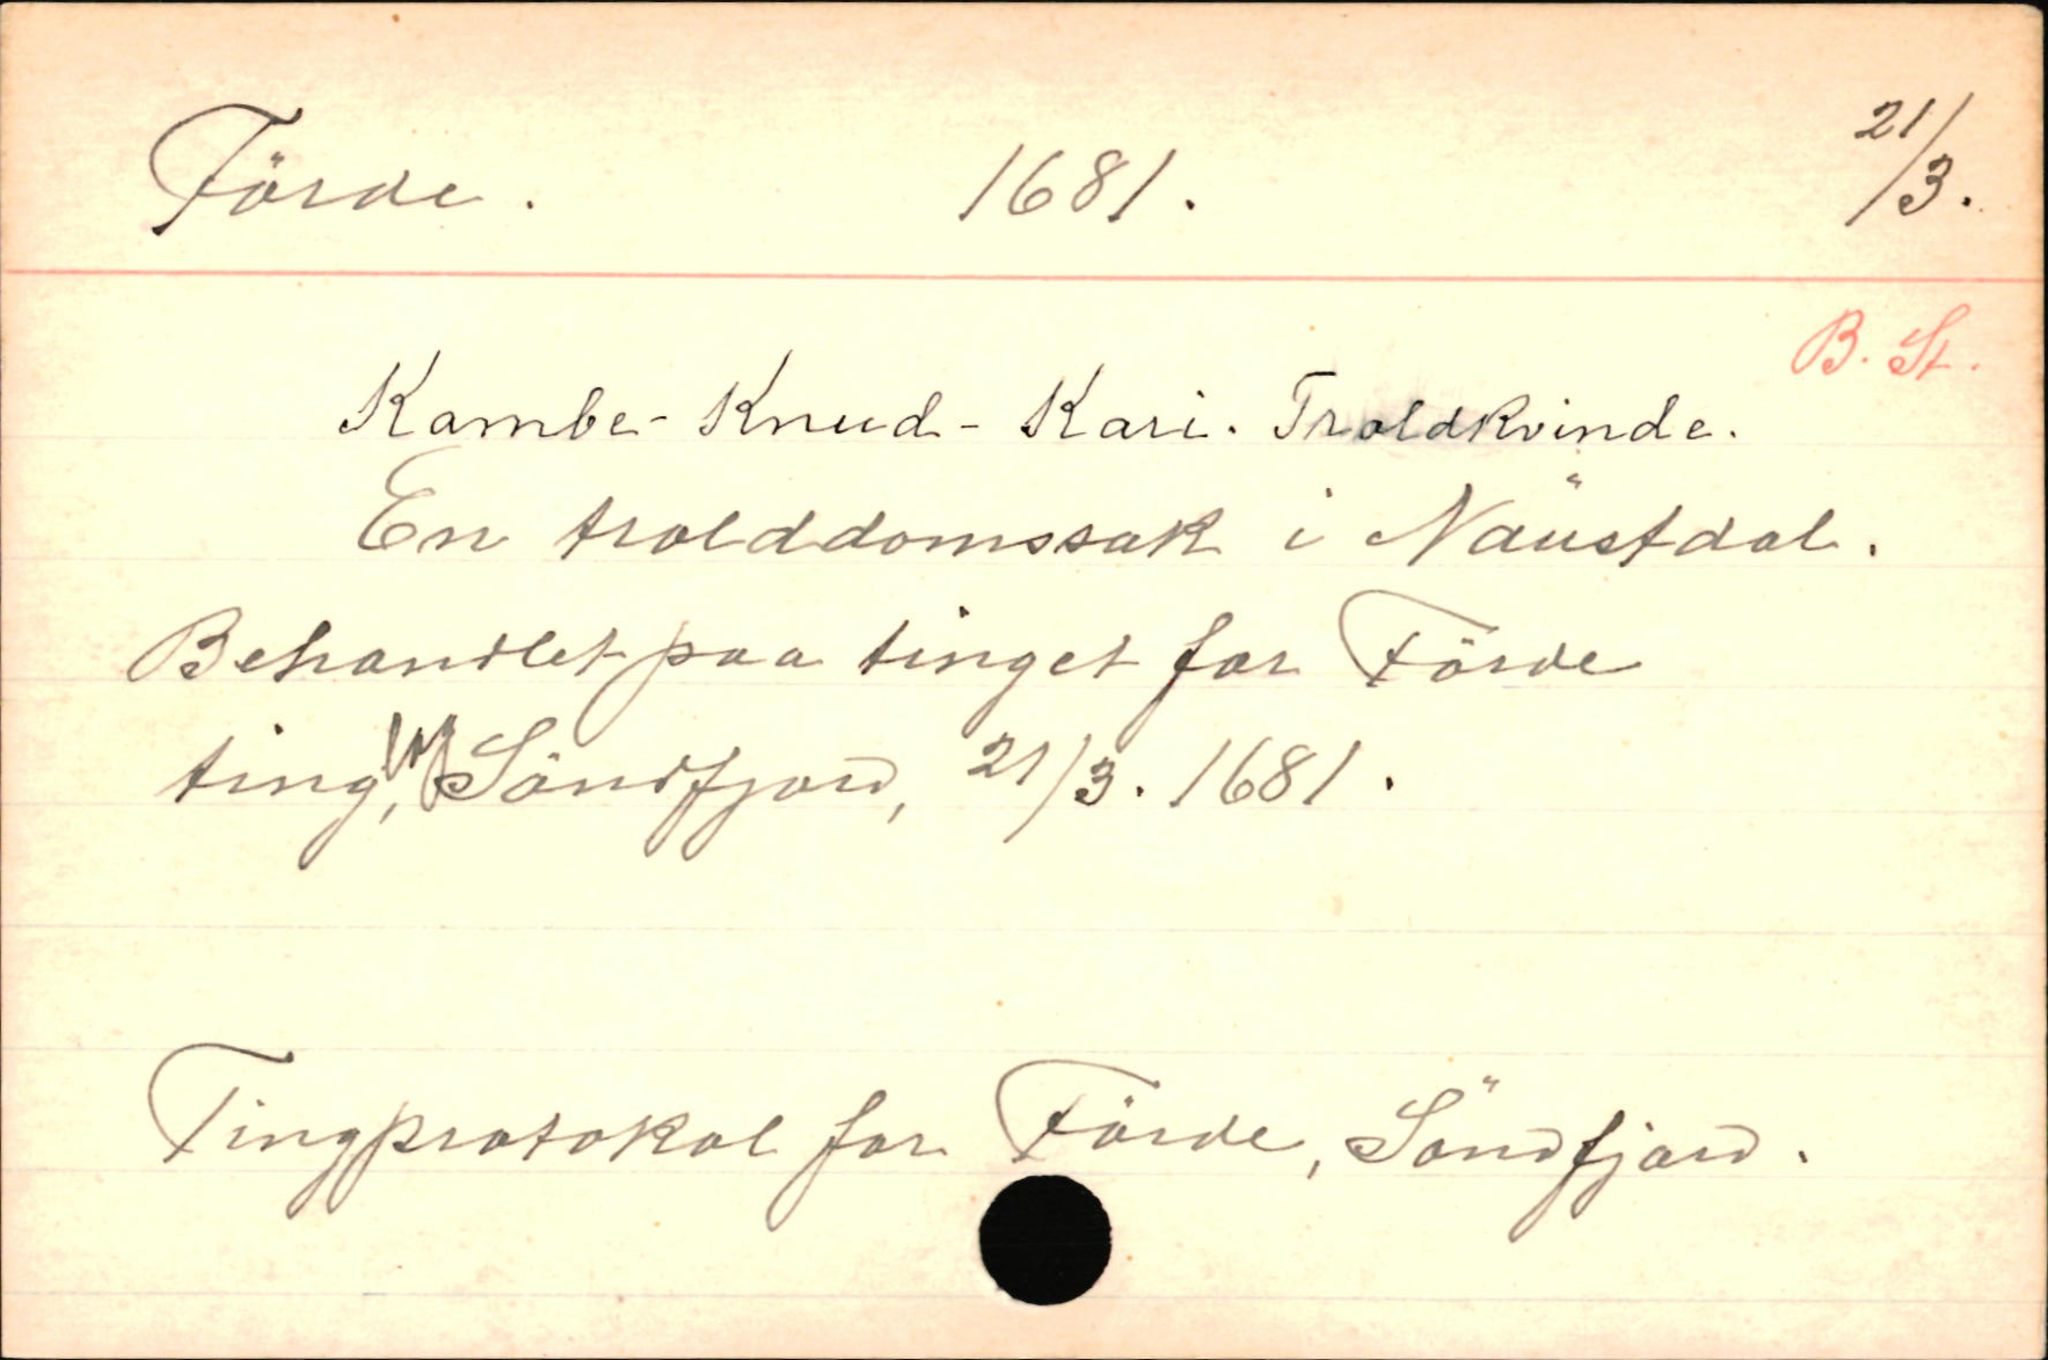 Förde. 1681. 21/3.
B. St.
Kambe- Knud- Kari. Troldkvinde.
En trolddomssak i Naüstdal.
Behandlet paa tinget for Förde
ting, Söndfjord, 21/3. 1681.
Tingprotokol for Förde, Söndfjord.